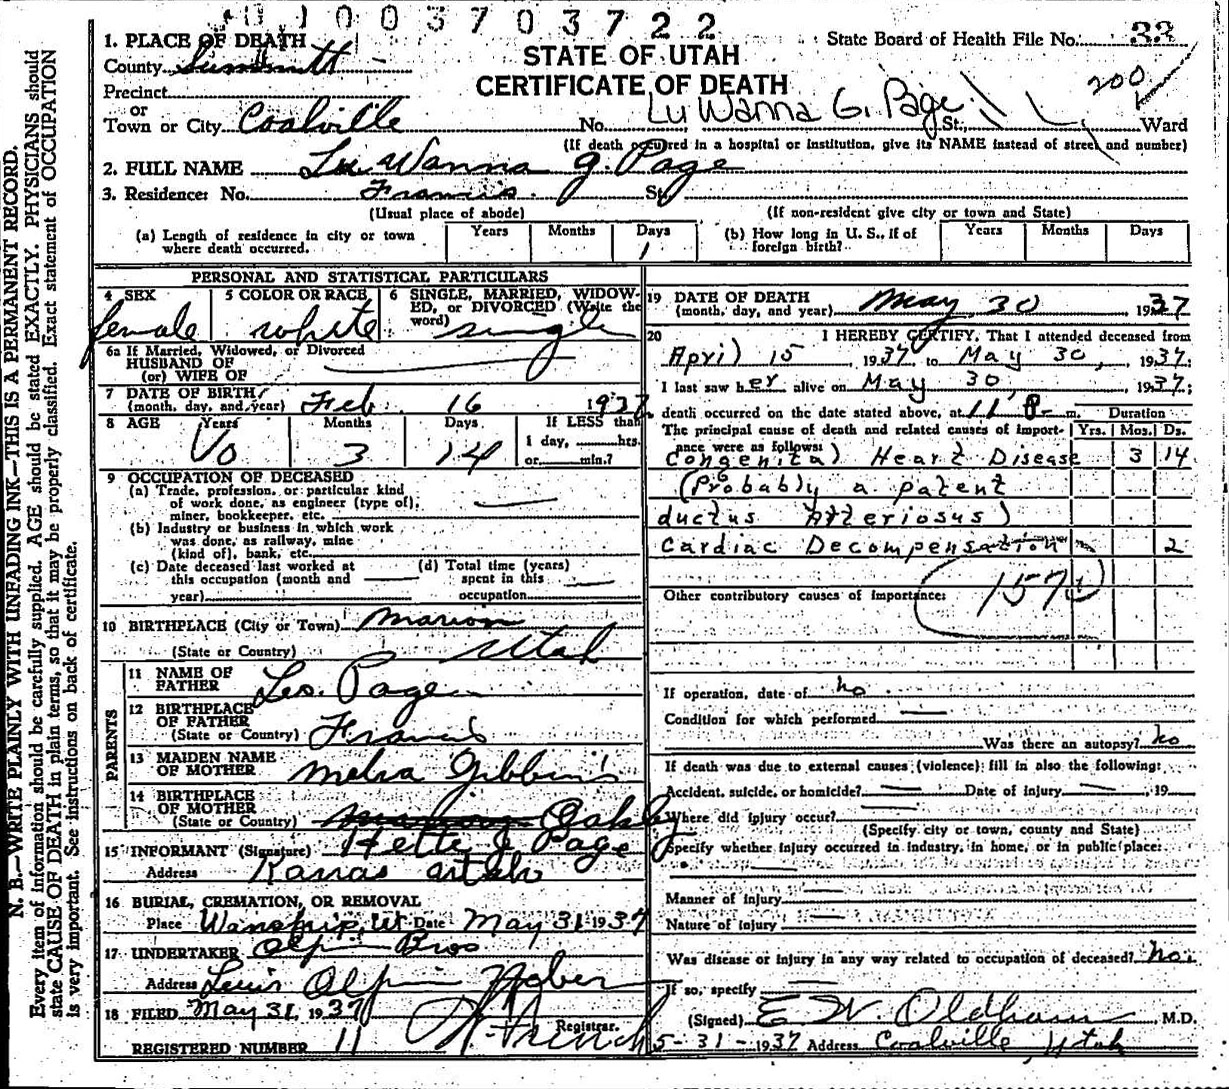 01003703722
1. PLACE OF DEATH
State Board of Health File No. 33
STATE OF UTAH
County Summit
CERTIFICATE OF DEATH
200
Precinct
or
Town or City Coalville No. Lu Wanna G. Page St., Ward
(If death occurred in a hospital or institution, give its NAME instead of street and number)
2. FULL NAME Lu Wanna G. Page
3. Residence: No. Francis St.
(Usual place of abode) (If non-resident give city or town and State)
(a) Length of residence in city or town where death occurred. Years Months Days 1
(b) How long in U. S., if of foreign birth? Years Months Days
PERSONAL AND STATISTICAL PARTICULARS
4 SEX female
5 COLOR OR RACE white
6 SINGLE, MARRIED, WIDOWED, OR DIVORCED (Write the word) single
6a If Married, Widowed, or Divorced
HUSBAND OF
(or) WIFE OF
7 DATE OF BIRTH
(month, day, and year) Feb. 16 1937
8 AGE Years 0 Months 3 Days 14 If LESS than
1 day, hrs.
or min.?
9 OCCUPATION OF DECEASED
(a) Trade, profession, or particular kind
of work done, as engineer (type of),
miner, bookkeeper, etc.
(b) Industry or business in which work
was done, as railway, mine
(kind of), bank, etc.
(c) Date deceased last worked at
this occupation (month and
year)
(d) Total time (years)
spent in this
occupation
10 BIRTHPLACE (City or Town) Marion
(State or Country) Utah
PARENTS
11 NAME OF
FATHER Leo. Page
12 BIRTHPLACE
OF FATHER
(State or Country) Francis
13 MAIDEN NAME
OF MOTHER Melva Gibbons
14 BIRTHPLACE
OF MOTHER
(State or Country) Oakley
15 INFORMANT (Signature) Hette J Page
Address Kamas Utah
16 BURIAL, CREMATION, OR REMOVAL
Place Wanship, Ut Date May 31 1937
17 UNDERTAKER Olpin Bros
Address Louis Olpin Heber
18 FILED May 31, 1937
Registrar.
REGISTERED NUMBER 11
19 DATE OF DEATH
(month, day, and year) May 30 1937
20 I HEREBY CERTIFY, That I attended deceased from
April 15, 1937 to May 30, 1937.
I last saw her alive on May 30, 1937.
death occurred on the date stated above, at 11 P. m. Duration
The principal cause of death and related causes of importance were as follows: Yrs. Mos. Ds.
Congenital Heart Disease 3 14
(Probably a patent
ductus Arteriosus)
Cardiac Decompensation 2
Other contributory causes of importance: 157
If operation, date of no
Condition for which performed
Was there an autopsy? no
If death was due to external causes (violence) fill in also the following:
Accident, suicide, or homicide? Date of injury 19
Where did injury occur?
(Specify city or town, county and State)
Specify whether injury occurred in industry, in home, or in public place:
Manner of injury
Nature of injury
Was disease or injury in any way related to occupation of deceased? no.
If so, specify
(Signed) E. W. Oldham M.D.
5-31-1937 Address Coalville, Utah
N. B.—WRITE PLAINLY WITH UNFADING INK—THIS IS A PERMANENT RECORD.
Every item of information should be carefully supplied. AGE should be stated EXACTLY. PHYSICIANS should
state CAUSE OF DEATH in plain terms, so that it may be properly classified. Exact statement of OCCUPATION
is very important. See instructions on back of certificate.